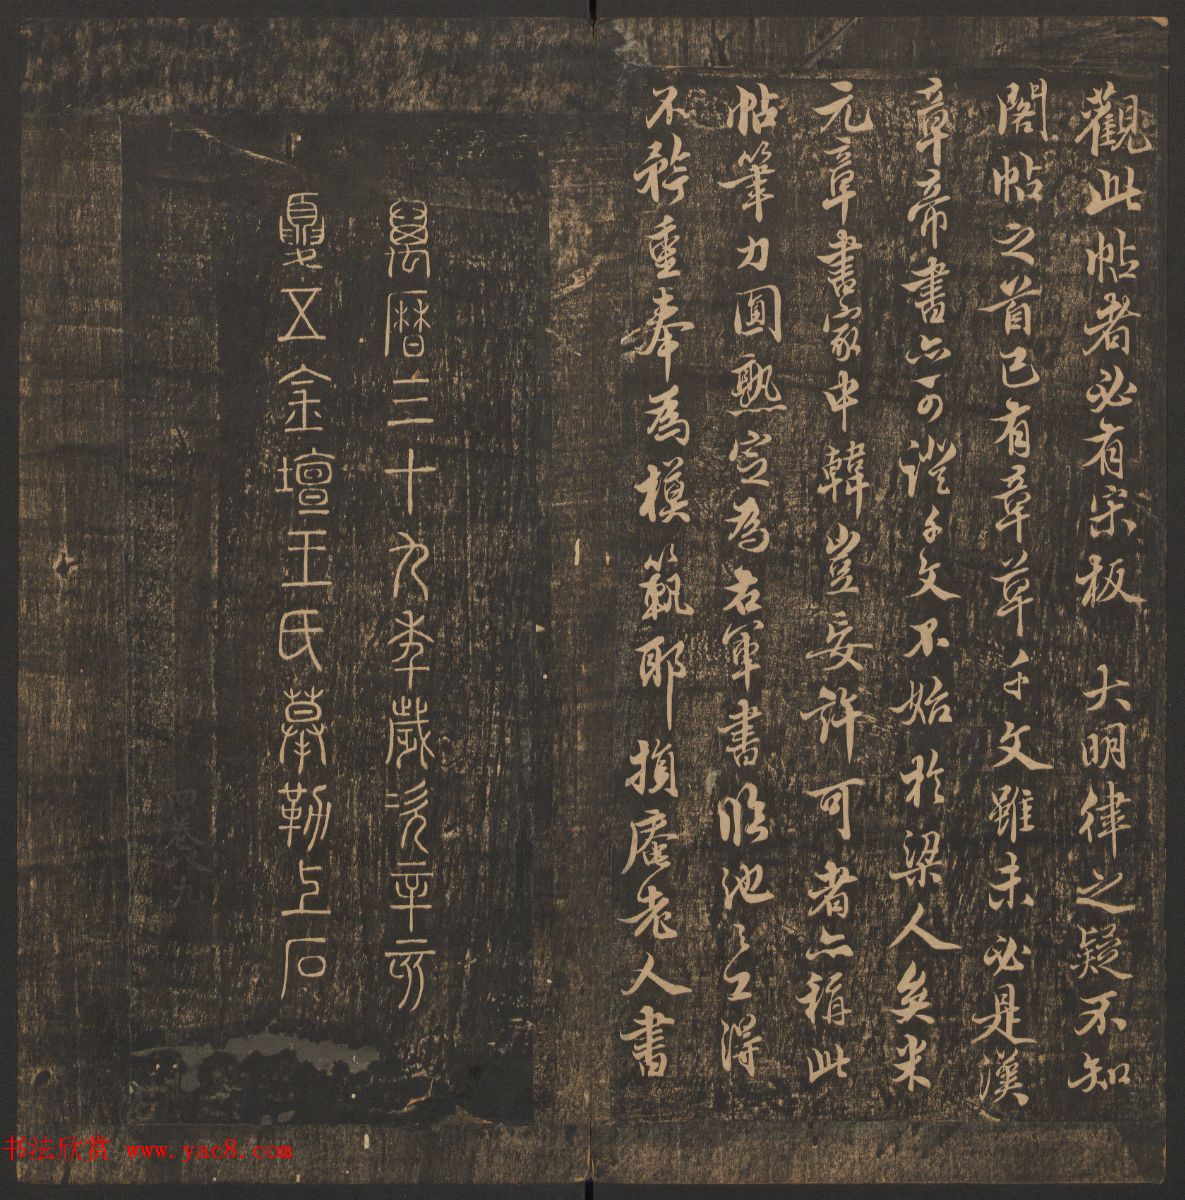 觀此帖者必有宋板　大明律之疑不知
閣帖之首已有章草千文雖未必是漢
章帝書亦可證千文不始於梁人矣米
元章書家中韓豈妄許可者亦稱此
帖筆力圓熟定為右軍書臨池之工得
不矜重奉為模範耶損庵老人書
萬曆三十九年歲次辛亥
夏五金壇王氏摹勒上石
四卷八九
书法欣赏 www.yac8.com